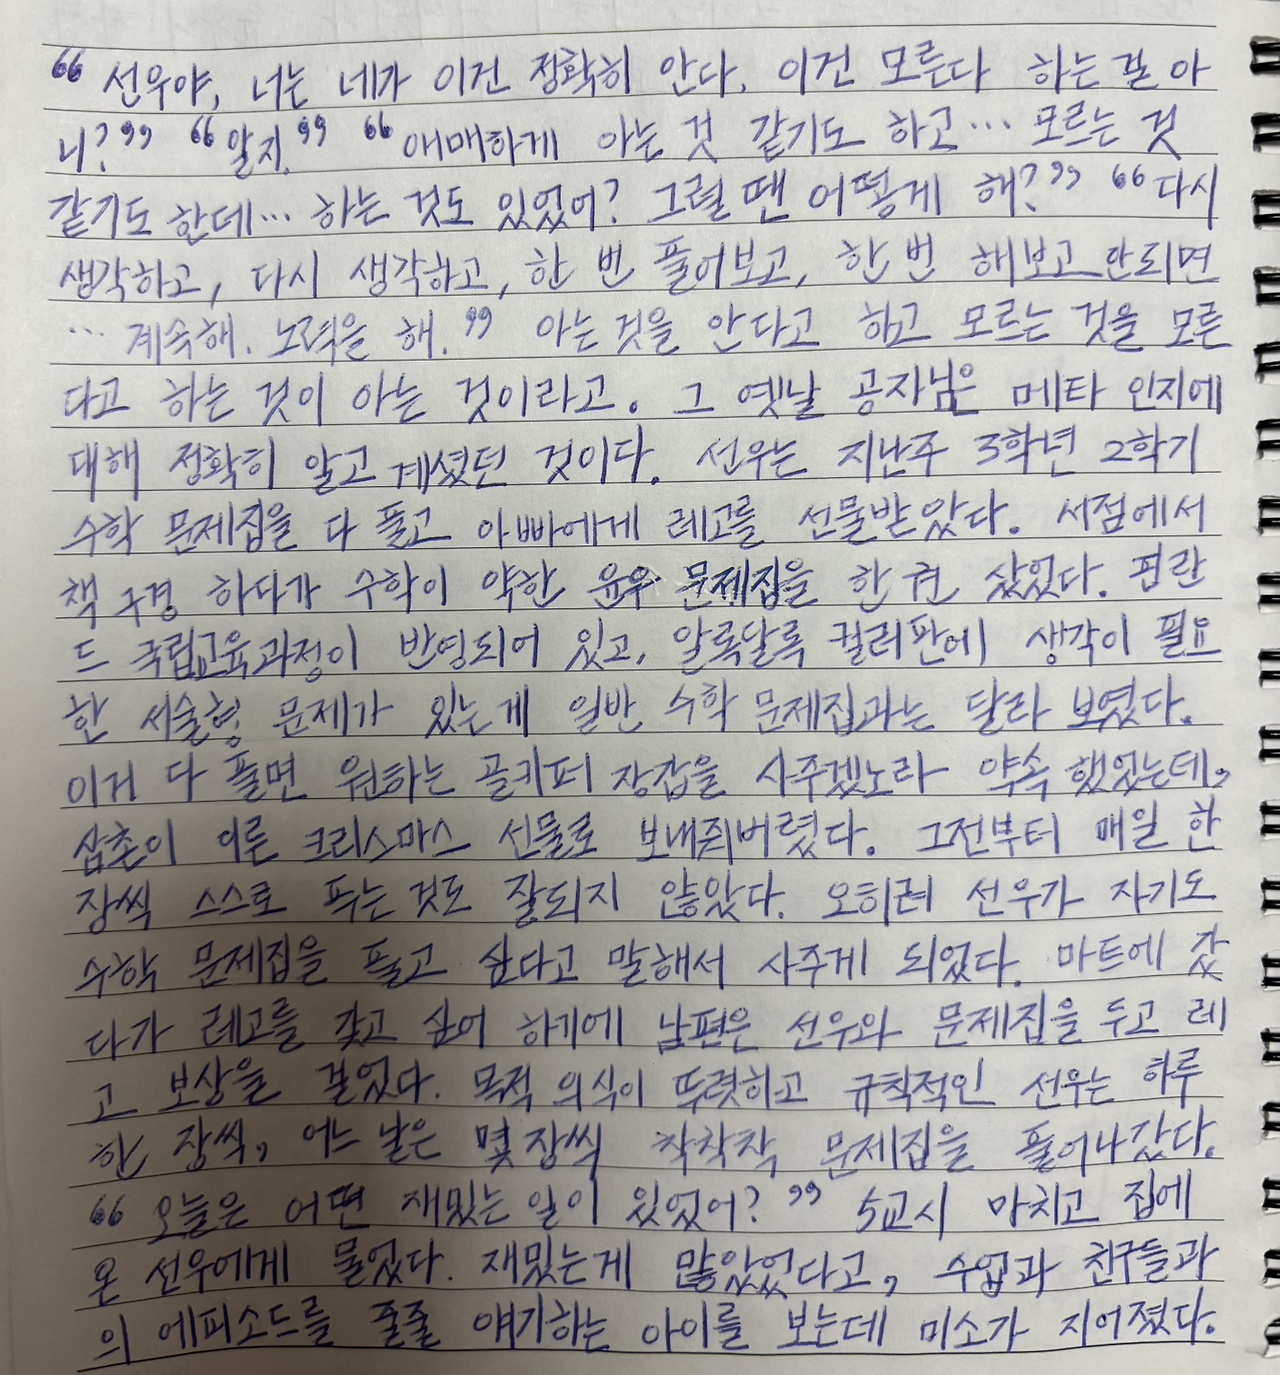 “선우야, 너는 네가 이건 정확히 안다, 이건 모른다 하는걸 아
니?” “알지.” “애매하게 아는 것 같기도 하고… 모르는 것
같기도 한데… 하는 것도 있었어? 그럴 땐 어떻게 해?” “다시
생각하고, 다시 생각하고, 한 번 풀어보고, 한 번 해보고 안되면
… 계속해. 노력을 해.” 아는것을 안다고 하고 모르는 것을 모른
다고 하는 것이 아는 것이라고. 그 옛날 공자님은 메타 인지에
대해 정확히 알고 계셨던 것이다. 선우는 지난주 3학년 2학기
수학 문제집을 다 풀고 아빠에게 레고를 선물받았다. 서점에서
책 구경 하다가 수학이 약한 윤우 문제집을 한 권 샀었다. 핀란
드 국립교육과정이 반영되어 있고, 알록달록 컬러판에 생각이 필요
한 서술형 문제가 있는게 일반 수학 문제집과는 달라 보였다.
이거 다 풀면 원하는 골키퍼 장갑을 사주겠노라 약속 했었는데,
삼촌이 이른 크리스마스 선물로 보내줘버렸다. 그전부터 매일 한
장씩 스스로 푸는 것도 잘되지 않았다. 오히려 선우가 자기도
수학 문제집을 풀고 싶다고 말해서 사주게 되었다. 마트에 갔
다가 레고를 갖고 싶어 하기에 남편은 선우와 문제집을 두고 레
고 보상을 걸었다. 목적 의식이 뚜렷하고 규칙적인 선우는 하루
한 장씩, 어느 날은 몇 장씩 착착착 문제집을 풀어나갔다.
“오늘은 어떤 재밌는 일이 있었어?” 5교시 마치고 집에
온 선우에게 물었다. 재밌는게 많았었다고, 수업과 친구들과
의 에피소드를 줄줄 얘기하는 아이를 보는데 미소가 지어졌다.